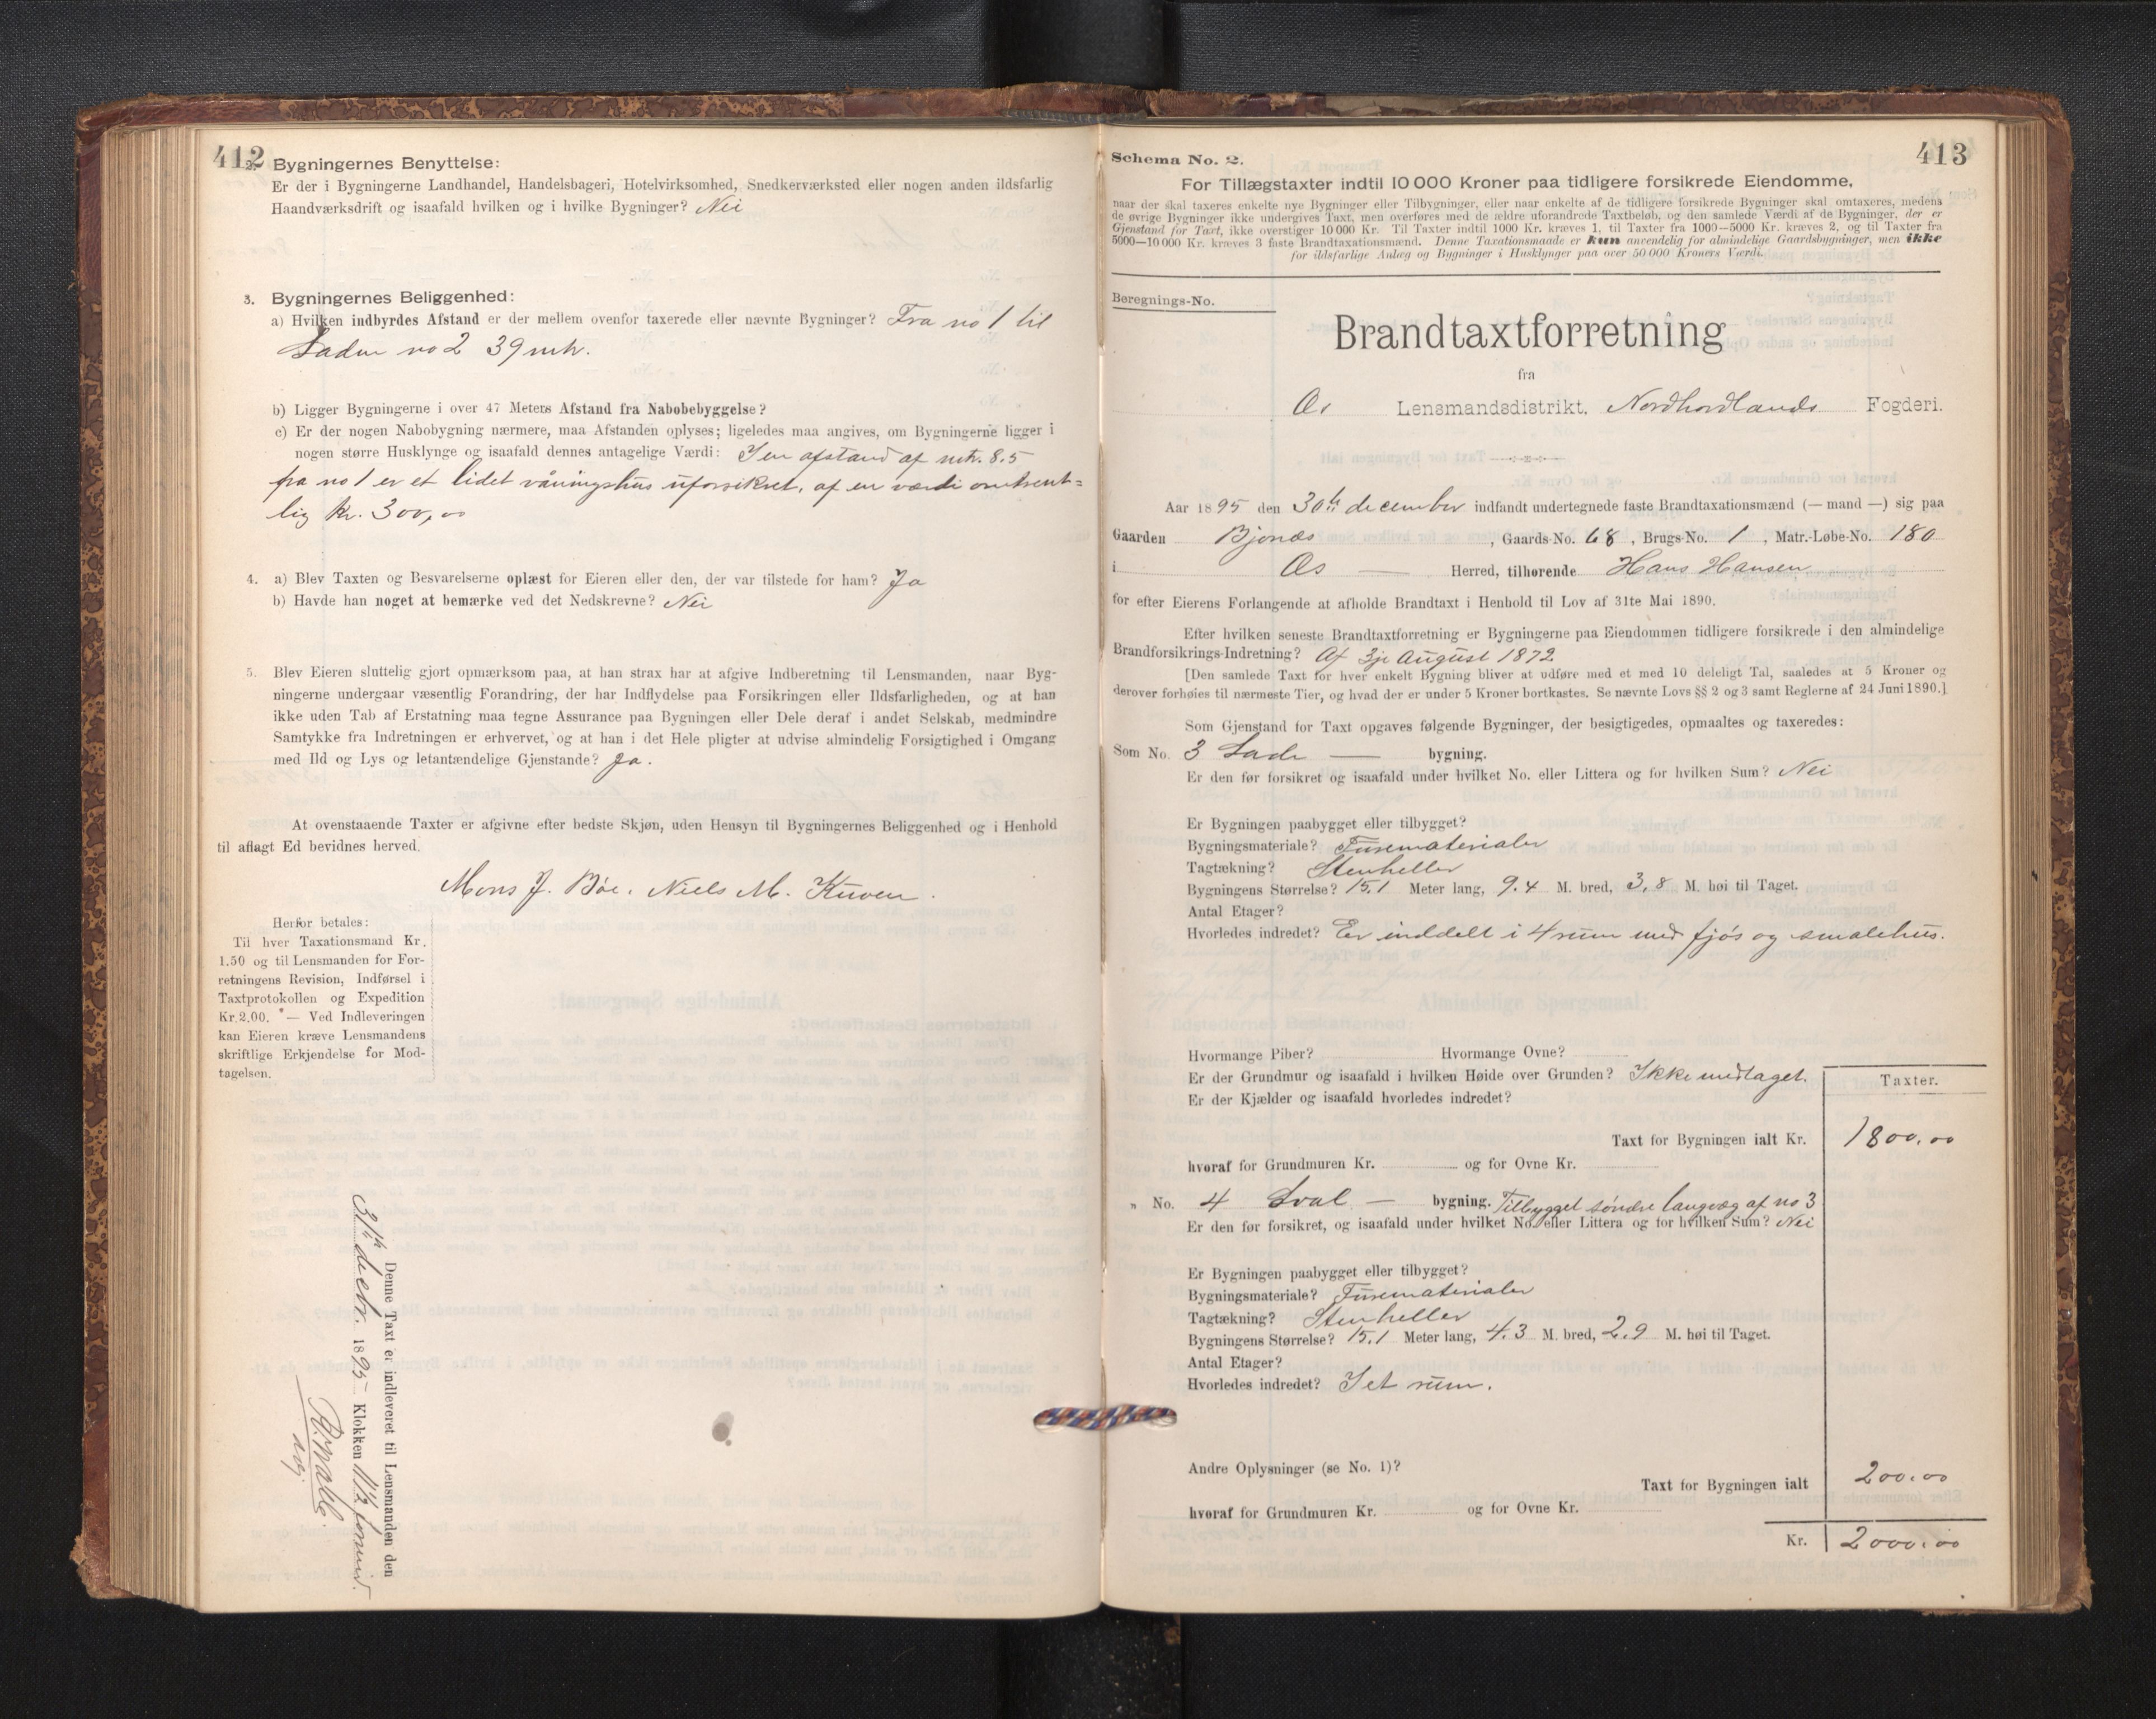 412
2. Bygningernes Benyttelse:
Er der i Bygningerne Landhandel, Handelsbageri, Hotelvirksomhed, Snedkerværksted eller nogen anden ildsfarlig
Haandværksdrift og isaafald hvilken og i hvilke Bygninger? Nei
3. Bygningernes Beliggenhed:
a) Hvilken indbyrdes Afstand er der mellem ovenfor taxerede eller nævnte Bygninger? Fra no 1 til
Laden no 2 39 mtr.
b) Ligger Bygningerne i over 47 Meters Afstand fra Nabobebyggelse?
c) Er der nogen Nabobygning nærmere, maa Afstanden oplyses; ligeledes maa angives, om Bygningerne ligger i
nogen større Husklynge og isaafald dennes antagelige Værdi: I en afstand af mtr. 8.5
fra no 1 er et lidet våningshus uforsikret, af en værdi omtrent=
lig kr. 300,00
4. a) Blev Taxten og Besvarelserne oplæst for Eieren eller den, der var tilstede for ham? Ja
b) Havde han noget at bemærke ved det Nedskrevne? Nei
5. Blev Eieren sluttelig gjort opmærksom paa, at han strax har at afgive Indberetning til Lensmanden, naar Byg-
ningerne undergaar væsentlig Forandring, der har Indflydelse paa Forsikringen eller Ildsfarligheden, og at han
ikke uden Tab af Erstatning maa tegne Assurance paa Bygningen eller Dele deraf i andet Selskab, medmindre
Samtykke fra Indretningen er erhvervet, og at han i det Hele pligter at udvise almindelig Forsigtighed i Omgang
med Ild og Lys og letantændelige Gjenstande? Ja.
At ovenstaaende Taxter er afgivne efter bedste Skjøn, uden Hensyn til Bygningernes Beliggenhed og i Henhold
til aflagt Ed bevidnes herved.
Mons J. Bøe. Niels M. Kuven.
Herfor betales:
Til hver Taxationsmand Kr.
1.50 og til Lensmanden for For-
retningens Revision, Indførsel i
Taxtprotokollen og Expedition
Kr. 2.00. — Ved Indleveringen
kan Eieren kræve Lensmandens
skriftlige Erkjendelse for Mod-
tagelsen.
Denne Taxt er indleveret til Lensmanden den
31te decbr. 1895 Klokken 11½ formid.
413
Schema No. 2.
For Tillægstaxter indtil 10000 Kroner paa tidligere forsikrede Eiendomme,
naar der skal taxeres enkelte nye Bygninger eller Tilbygninger, eller naar enkelte af de tidligere forsikrede Bygninger skal omtaxeres, medens
de øvrige Bygninger ikke undergives Taxt, men overføres med de ældre uforandrede Taxtbeløb, og den samlede Værdi af de Bygninger, der er
Gjenstand for Taxt, ikke overstiger 10000 Kr. Til Taxter indtil 1000 Kr. kræves 1, til Taxter fra 1000—5000 Kr. kræves 2, og til Taxter fra
5000—10000 Kr. kræves 3 faste Brandtaxationsmænd. Denne Taxationsmaade er kun anvendelig for almindelige Gaardsbygninger, men ikke
for ildsfarlige Anlæg og Bygninger i Husklynger paa over 50000 Kroners Værdi.
Beregnings-No.
Brandtaxtforretning
fra
Os Lensmandsdistrikt, Nordhordlands Fogderi.
Aar 1895 den 30te december indfandt undertegnede faste Brandtaxationsmænd (— mand —) sig paa
Gaarden Bjonæs, Gaards-No. 68, Brugs-No. 1, Matr.-Løbe-No. 180
i Os Herred, tilhørende Hans Hansen
for efter Eierens Forlangende at afholde Brandtaxt i Henhold til Lov af 31te Mai 1890.
Efter hvilken seneste Brandtaxtforretning er Bygningerne paa Eiendommen tidligere forsikrede i den almindelige
Brandforsikrings-Indretning? Af 3je August 1872
[Den samlede Taxt for hver enkelt Bygning bliver at udføre med et med 10 deleligt Tal, saaledes at 5 Kroner og
derover forhøies til nærmeste Tier, og hvad der er under 5 Kroner bortkastes. Se nævnte Lovs §§ 2 og 3 samt Reglerne af 24 Juni 1890.]
Som Gjenstand for Taxt opgaves følgende Bygninger, der besigtigedes, opmaaltes og taxeredes:
Som No. 3 Lade — bygning.
Er den før forsikret og isaafald under hvilket No. eller Littera og for hvilken Sum? Nei
Er Bygningen paabygget eller tilbygget?
Bygningsmateriale? Furematerialer
Tagtækning? Stenheller
Bygningens Størrelse? 15,1 Meter lang, 9.4 M. bred, 3,8 M. høi til Taget.
Antal Etager?
Hvorledes indredet? Er inddelt i 4 rum med fjøs og smalehus.
Hvormange Piber? Hvormange Ovne?
Er der Grundmur og isaafald i hvilken Høide over Grunden? Ikke medtaget.
Taxter.
Er der Kjælder og isaafald hvorledes indredet?
Taxt for Bygningen ialt Kr. 1800,00
hvoraf for Grundmuren Kr. og for Ovne Kr.
" No. 4 Sval — bygning. Tilbygget søndre langvæg af no 3
Er den før forsikret, og isaafald under hvilket No. eller Littera og for hvilken Sum? Nei
Er Bygningen paabygget eller tilbygget?
Bygningsmateriale? Furematerialer
Tagtækning? Stenheller
Bygningens Størrelse? 15.1 Meter lang, 4.3 M. bred, 2.9 M. høi til Taget.
Antal Etager?
Hvorledes indredet? I et rum.
Andre Oplysninger (se No. 1)?
Taxt for Bygningen ialt 200,00
hvoraf for Grundmuren Kr. og for Ovne Kr.
Kr. 2000,00